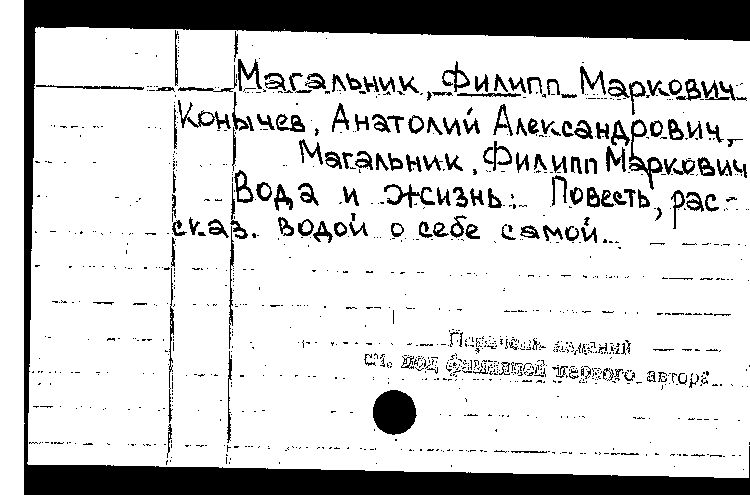 Магальник, Филипп Маркович
Конычев, Анатолий Александрович,
Магальник, Филипп Маркович
Вода и жизнь: Повесть, рас-
сказ. водой о себе самой.
Перечень изданий
см. под фамилией первого автора